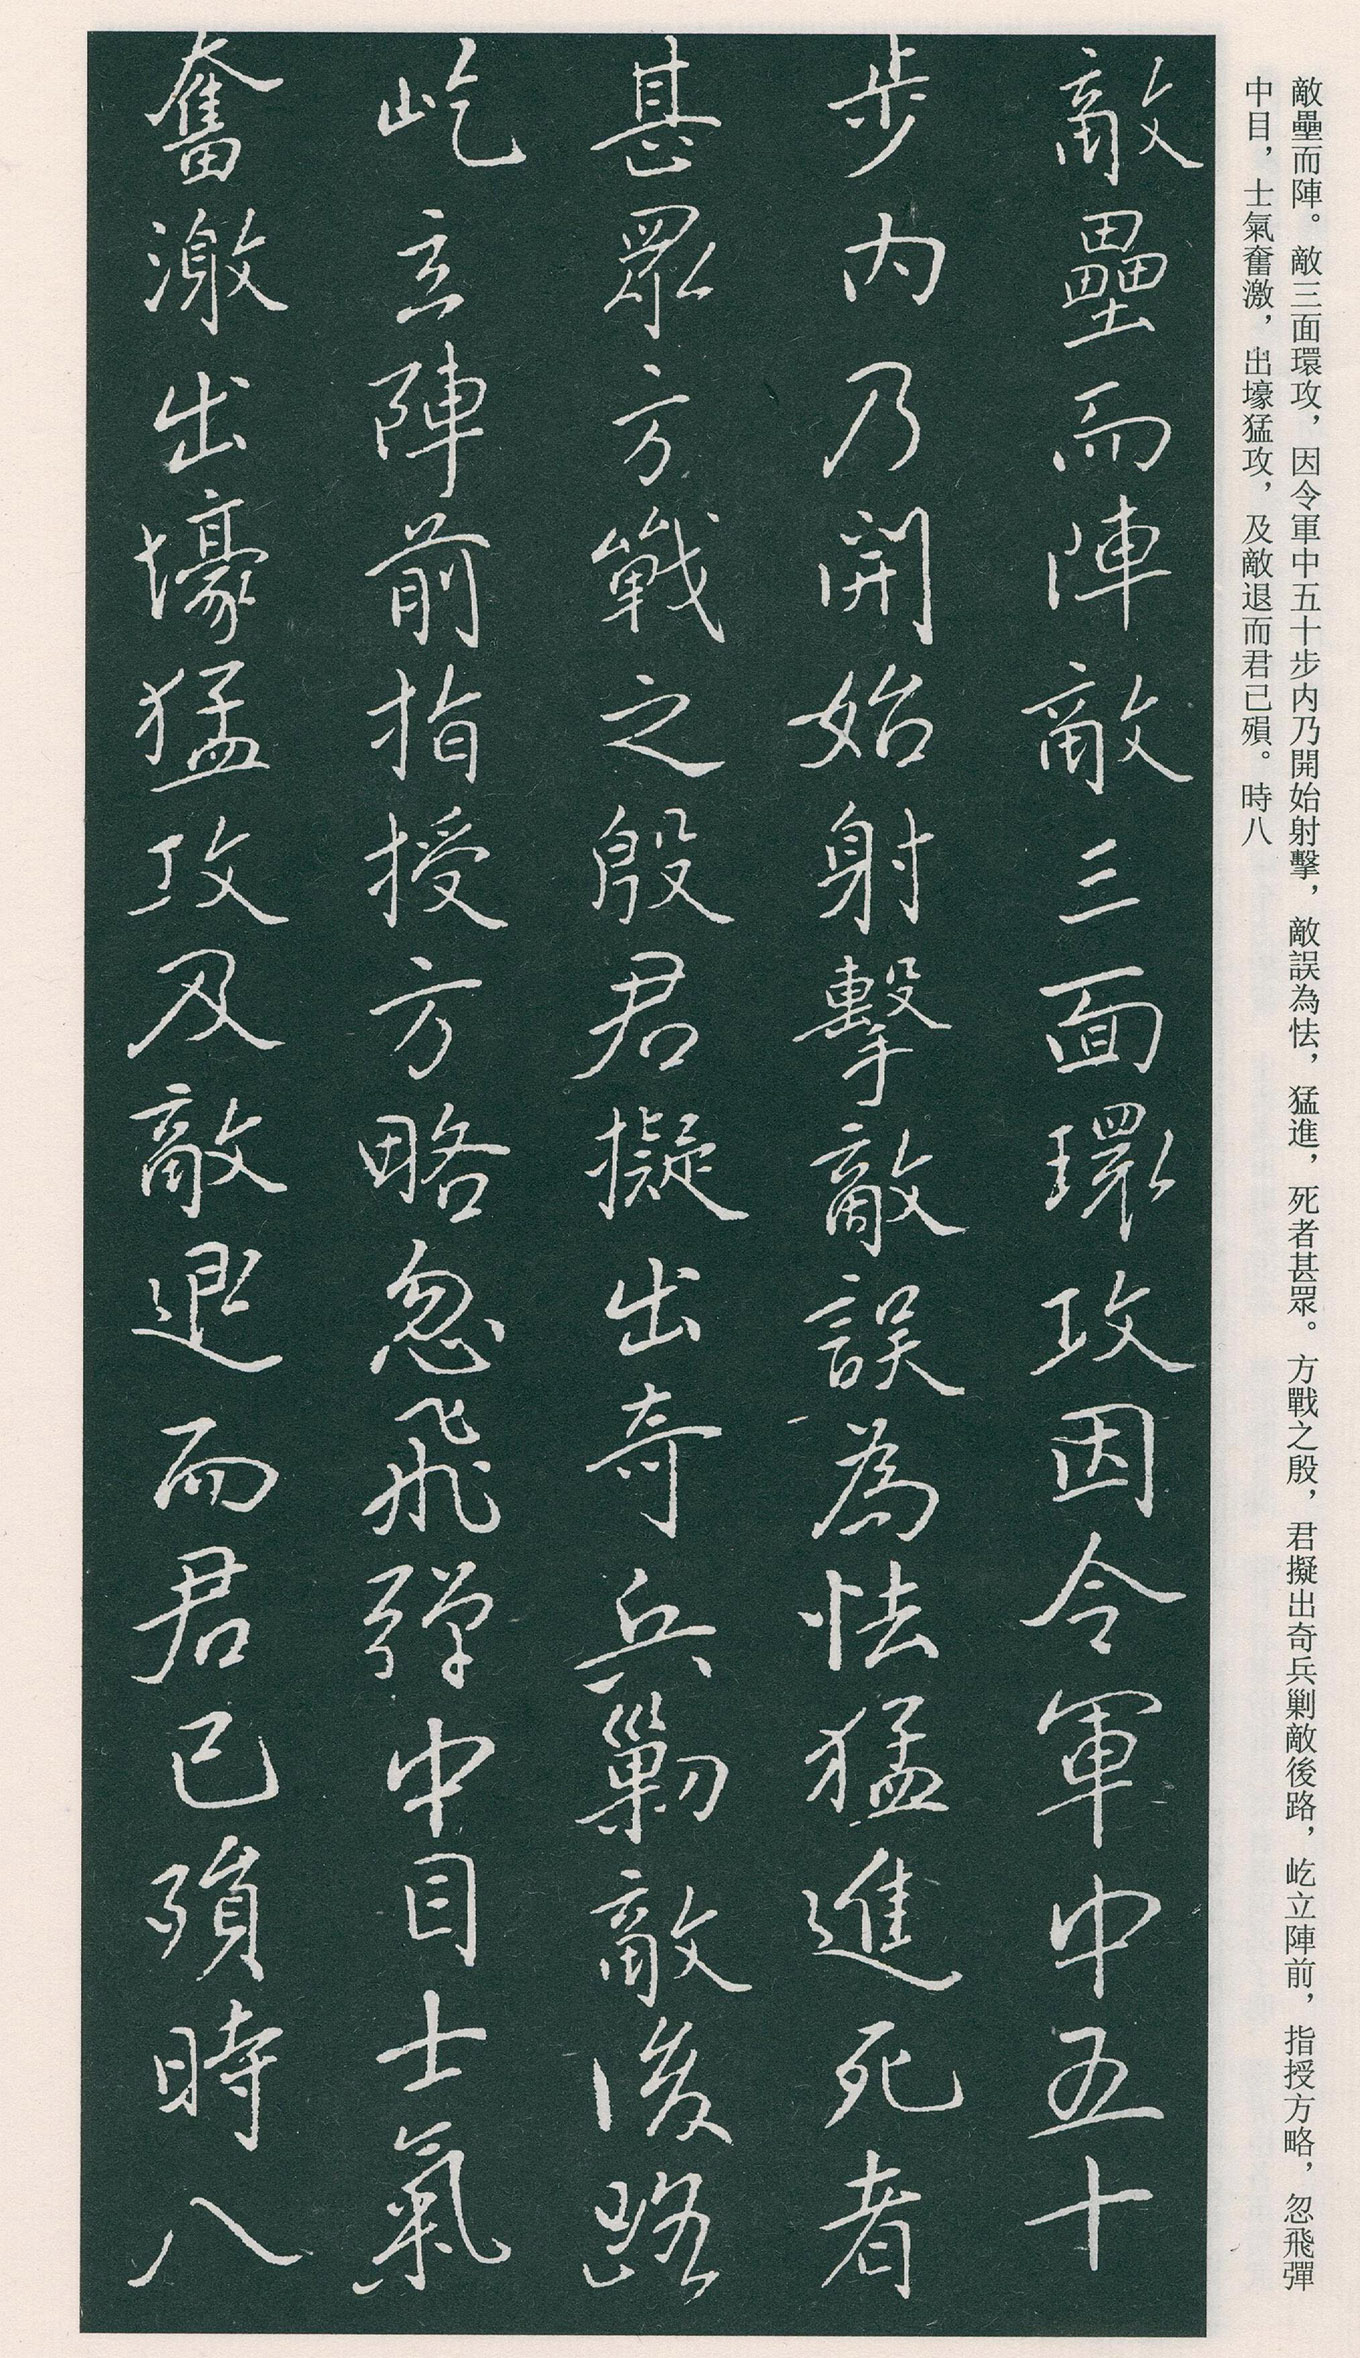 敵壘而陣。敵三面環攻，因令軍中五十步内乃開始射擊，敵誤為怯，猛進，死者甚眾。方戰之殷，君擬出奇兵剿敵後路，屹立陣前，指授方略，忽飛彈
中目，士氣奮激，出壕猛攻，及敵退而君已殞。時八
敵壘而陣敵三面環攻因令軍中五十
步内乃開始射擊敵誤為怯猛進死者
甚眾方戰之殷君擬出奇兵勦敵後路
屹立陣前指授方略忽飛彈中目士氣
奮激出壕猛攻及敵退而君已殞時八